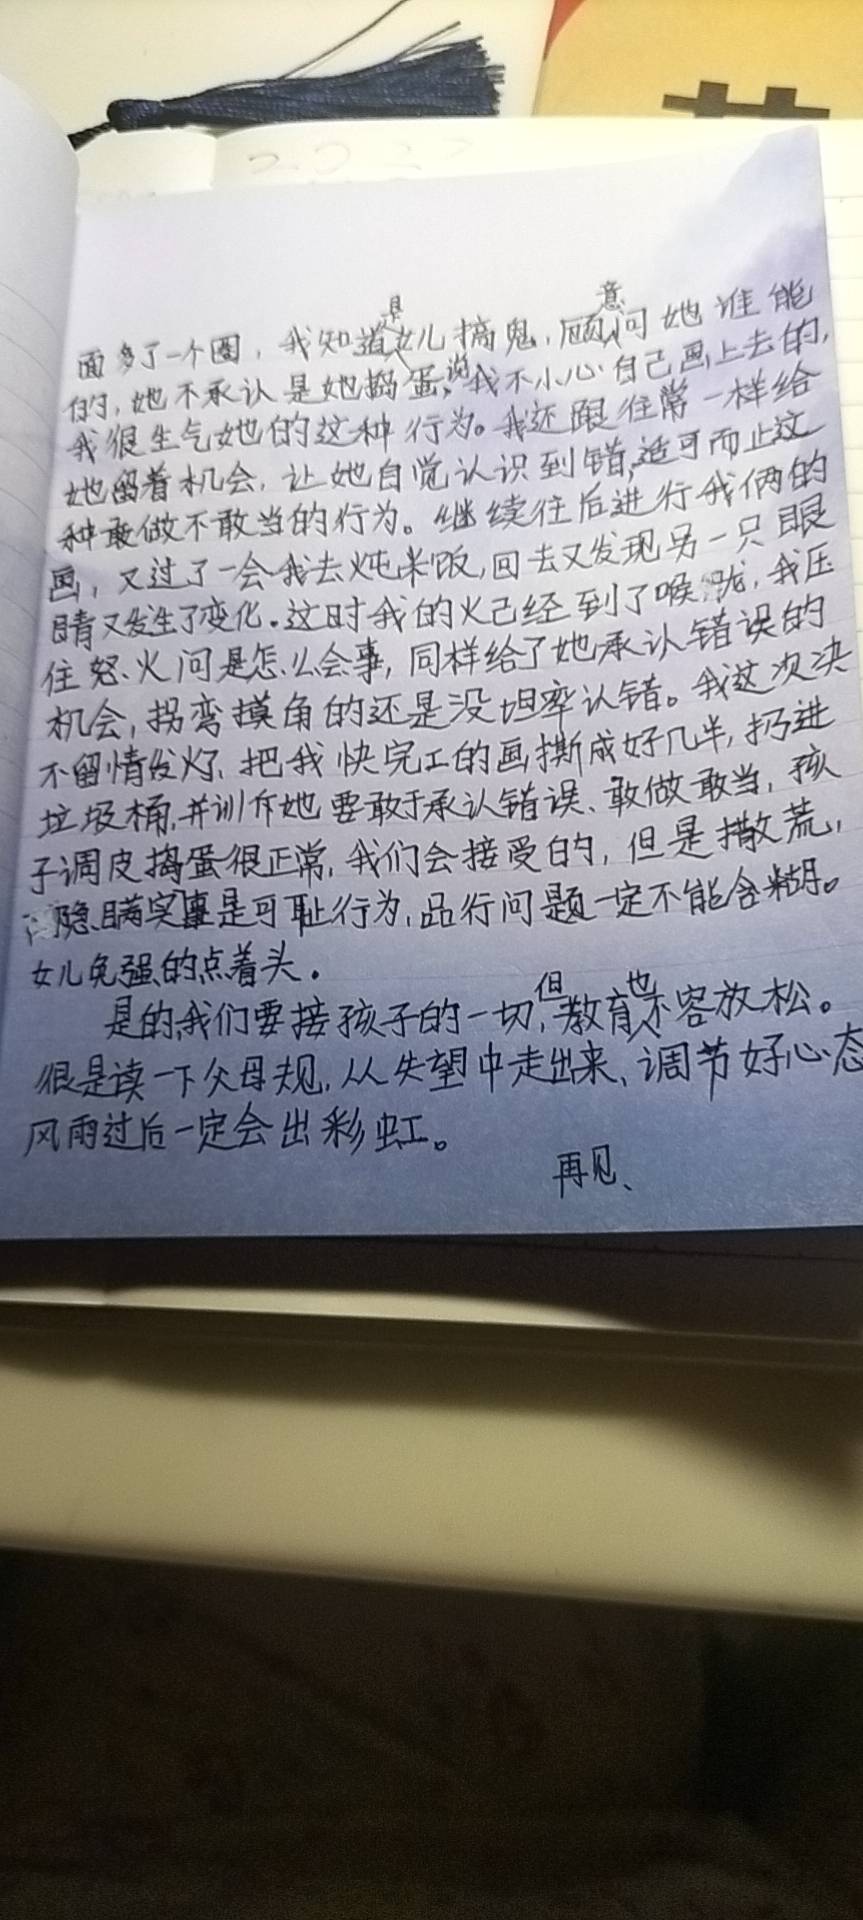 面多了一个圈，我知道是女儿搞鬼，顾意问她谁能
的，她不承认是她捣蛋，说我不小心自己画上去的，
我很生气她的这种行为。我还跟往常一样给
她留着机会，让她自觉认识到错，适可而止这
种敢做不敢当的行为。继续往后进行我俩的
画，又过了一会我去炖米饭，回去又发现另一只眼
睛又发生了变化。这时我的火已经到了喉咙，我压
住怒火问是怎么会事，同样给了她承认错误的
机会，拐弯摸角的还是没坦率认错。我这次决
不留情发火了，把我快完工的画撕成好几半，扔进
垃圾桶，并训斥她要敢于承认错误、敢做敢当，孩
子调皮捣蛋很正常，我们会接受的，但是撒荒，
隐瞒实事是可耻行为，品行问题一定不能含糊。
女儿免强的点着头。
是的，我们要接孩子的一切，但教育也不容放松。
很是读一下父母规，从失望中走出来，调节好心态
风雨过后一定会出彩虹。
再见、